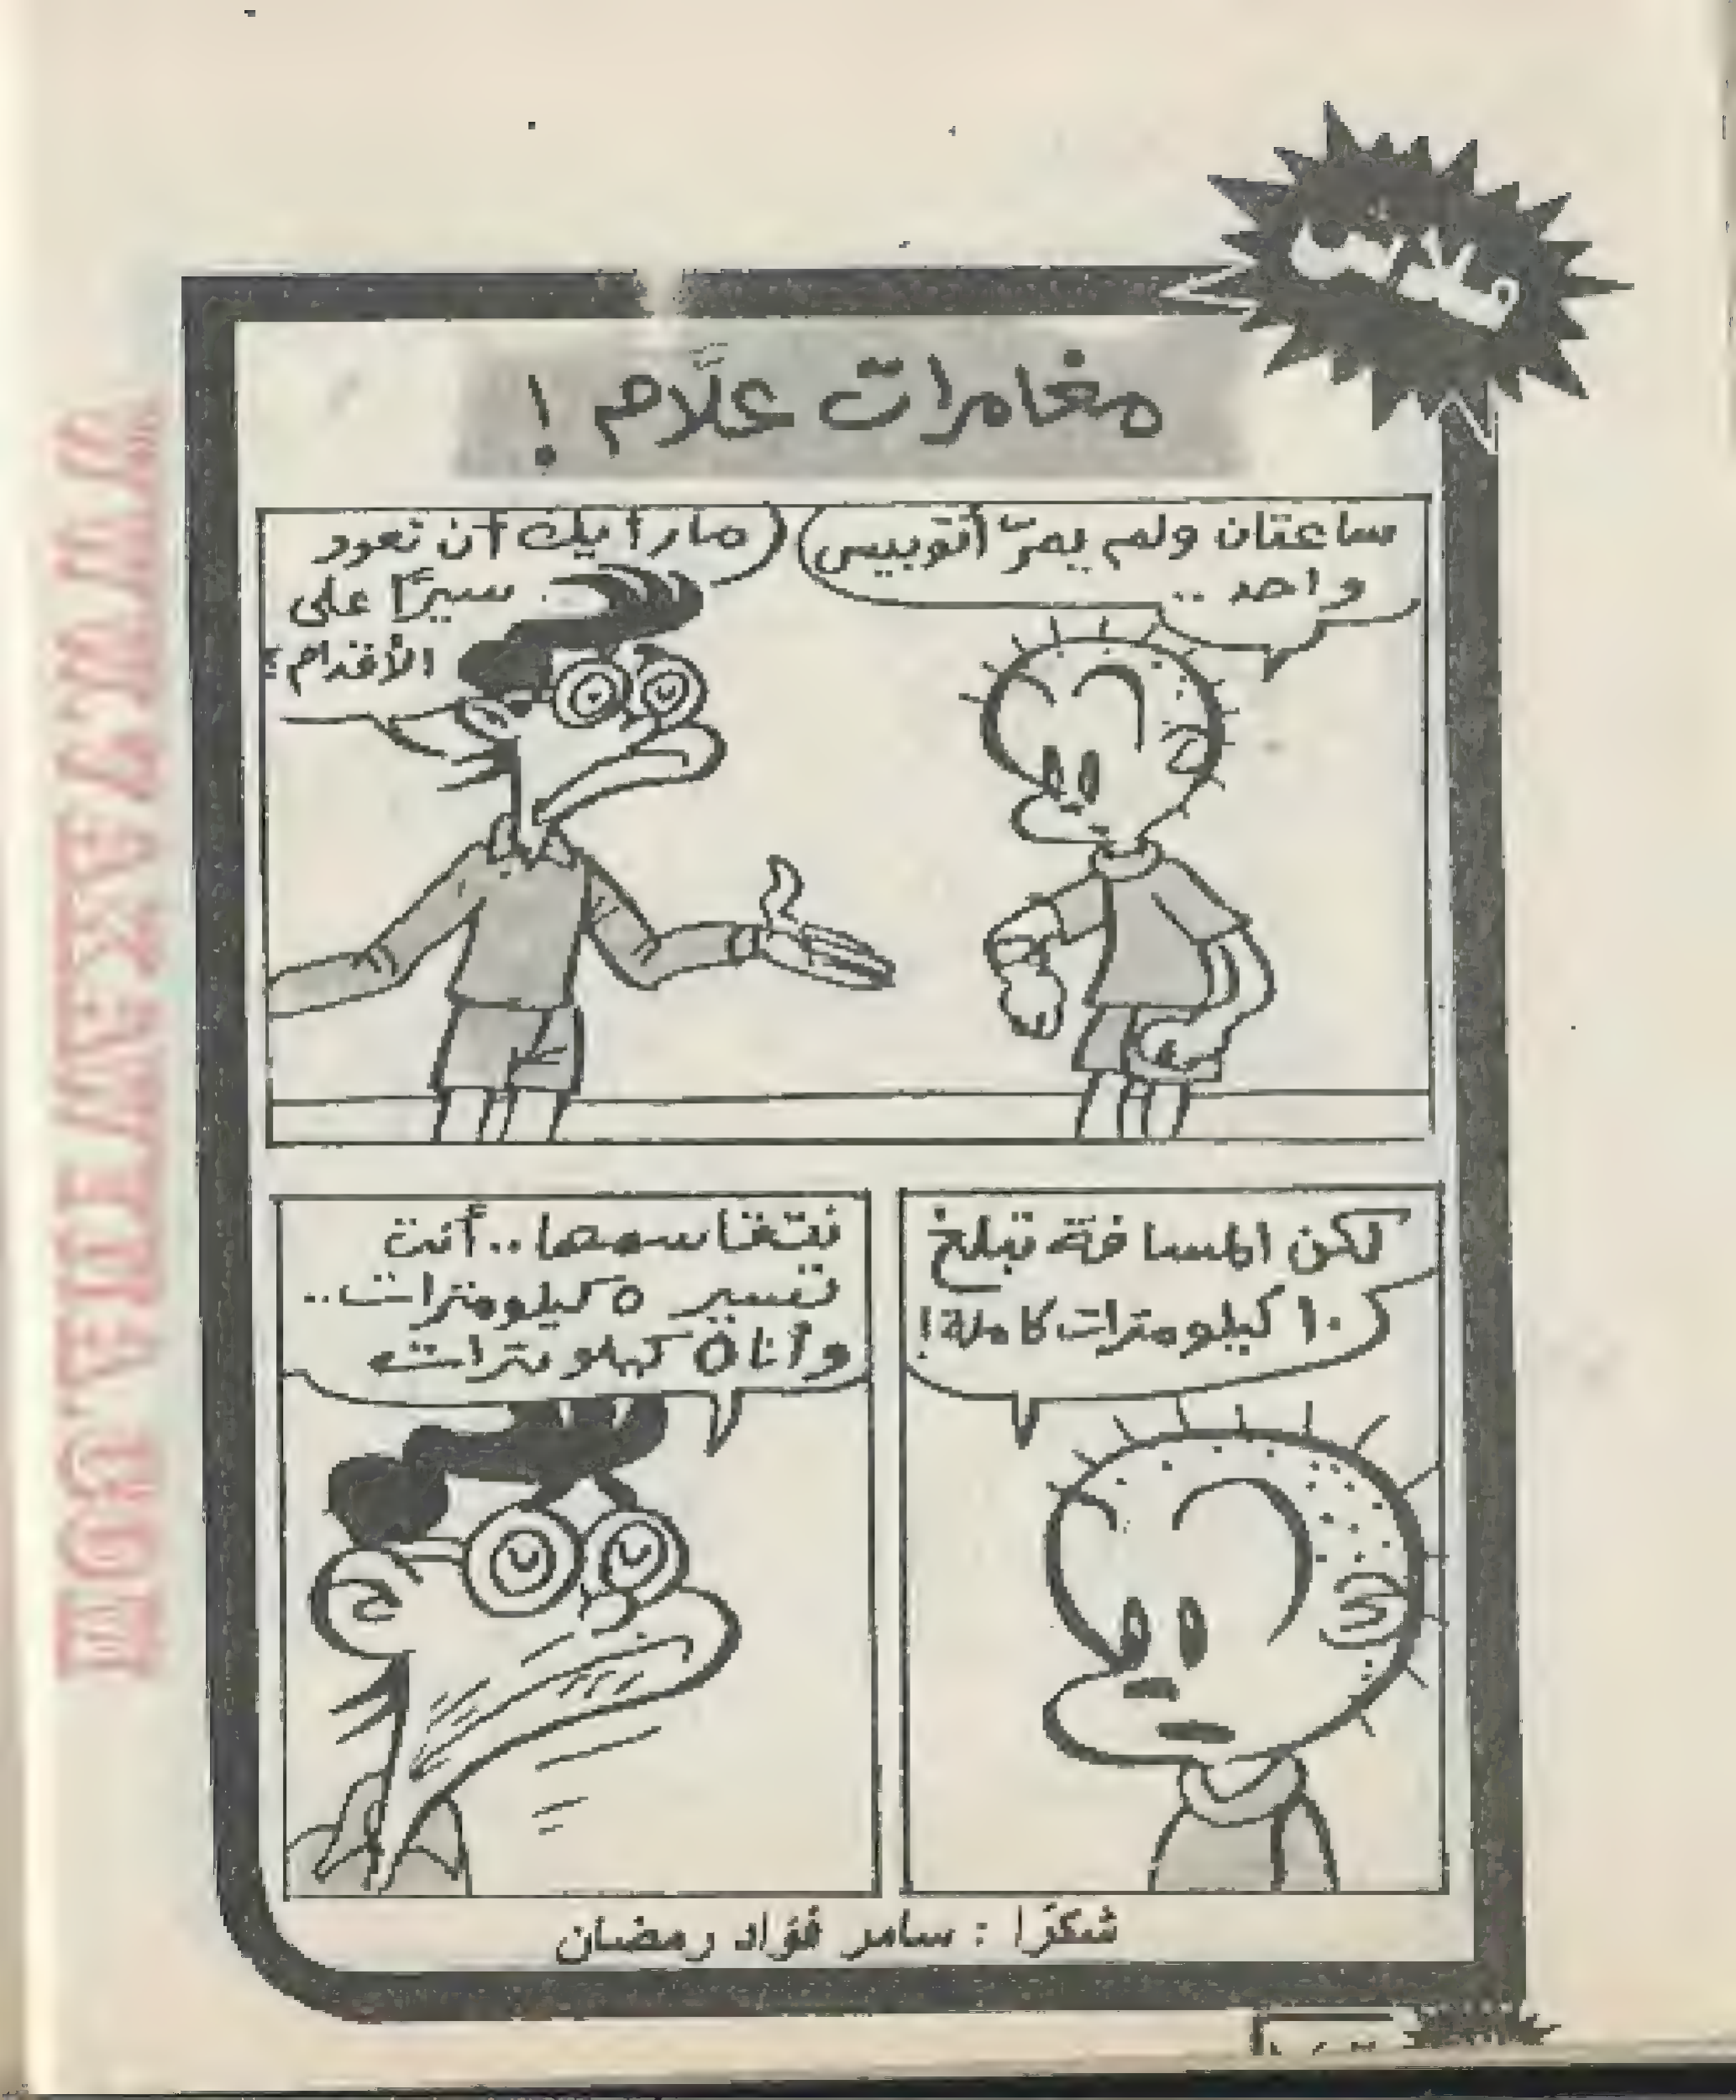 مغامرات علَّام !
ساعتان ولم يمرّ أتوبيس
واحد ..
ما رأيك أن نعود
سيرًا على
الأقدام ؟
لكن المسافة تبلغ
١٠ كيلومترات كاملة !
نتقاسمها .. أنت
تسير ٥ كيلومترات ..
وأنا ٥ كيلومترات
شكرًا : سامر فؤاد رمضان